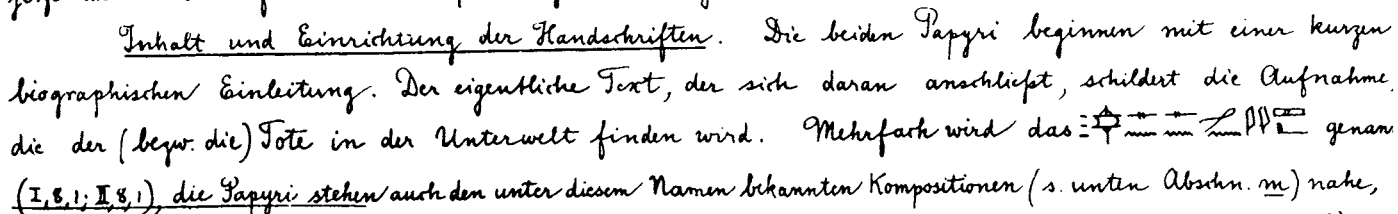 Inhalt und Einrichtung der Handschriften. Die beiden Papyri beginnen mit einer kurzen
biographischen Einleitung. Der eigentliche Text, der sich daran anschließt, schildert die Aufnahme,
die der (bezw. die) Tote in der Unterwelt finden wird. Mehrfach wird das genan
(I,8,1; II,8,1), die Papyri stehen auch den unter diesem Namen bekannten Kompositionen (s. unten Abschn. m) nahe,